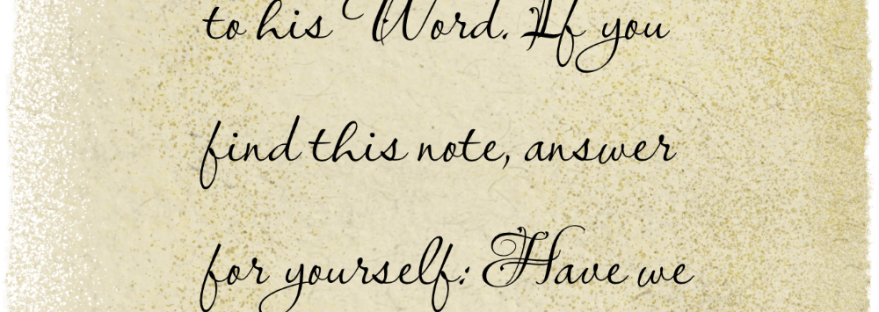 to his Word. If you
find this note, answer
for yourself: Have we